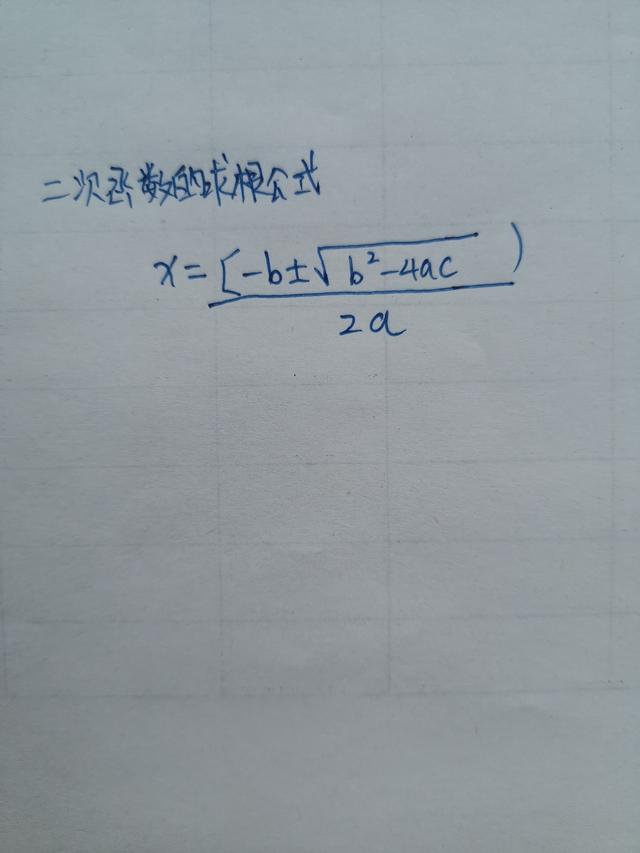 二次函数的求根公式
x = [-b±√(b²-4ac) ) / 2a